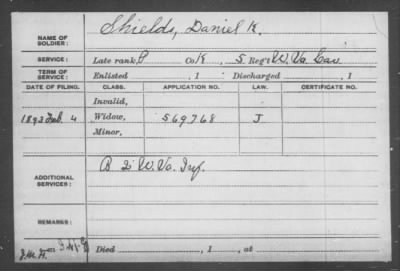 NAME OF SOLDIER: Shields, Daniel K.
SERVICE: Late rank, P Co. K, 5 Reg't W. Va. Cav.
TERM OF SERVICE: Enlisted , 1 Discharged , 1
DATE OF FILING. CLASS. APPLICATION NO. LAW. CERTIFICATE NO.
Invalid,
1893 Feb. 4 Widow, 569768 J
Minor,
ADDITIONAL SERVICES: B 2" W. Va. Inf.
REMARKS:
Died , 1 , at